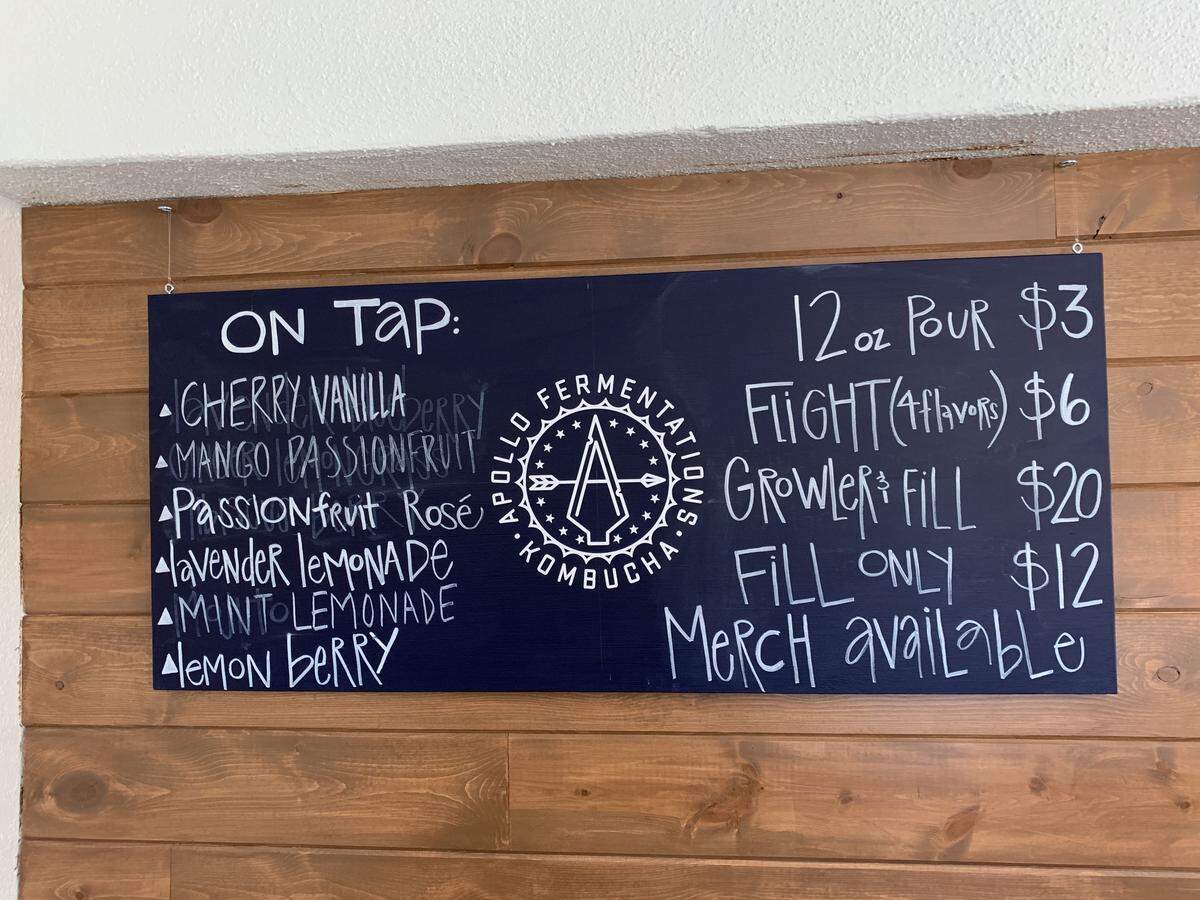 ON TAP:
CHERRY VANILLA
MANGO PASSIONFRUIT
PASSIONfruit Rosé
lavender lemonade
MINT LEMONADE
lemon berry
APOLLO FERMENTATIONS
• KOMBUCHA •
12 oz POUR $3
FliGHT (4 flavors) $6
GROWLER & FILL $20
FiLL ONLY $12
MERCH available